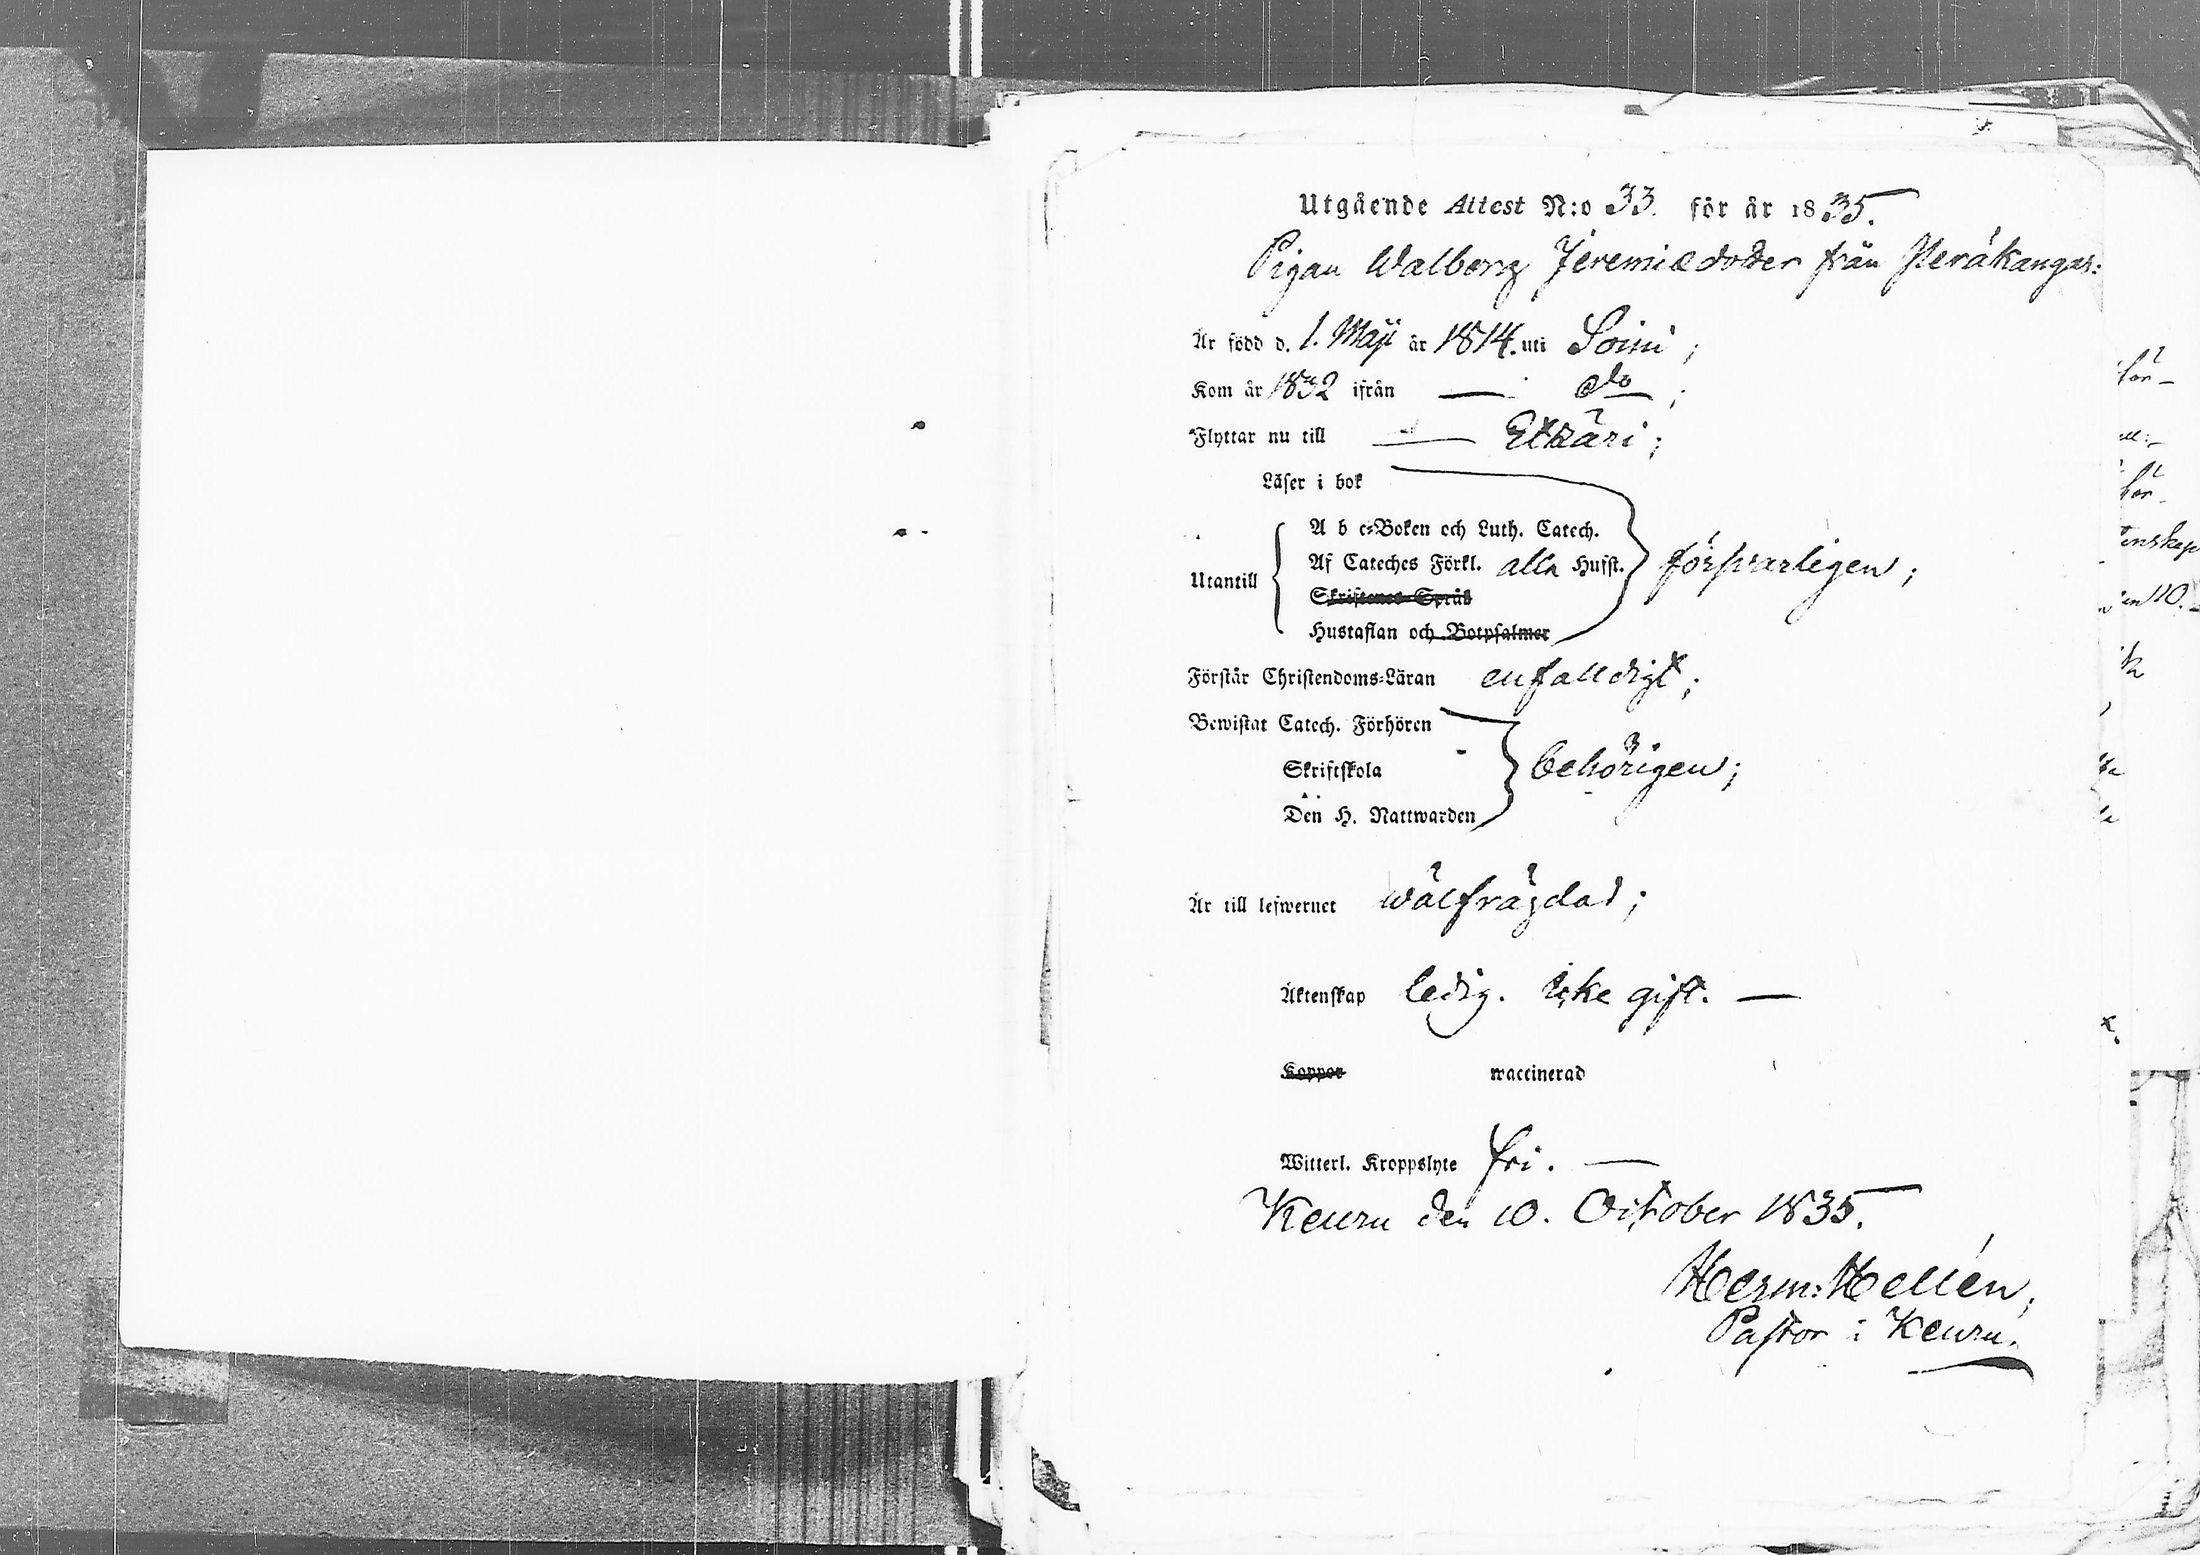 Utgående Attest N:o 33. för år 1835.
Pigan Walborg Jeremiædotter från Peräkangas:
Är född d. 1. Maji år 1814. uti Soini;
Kom år 1832 ifrån — do;
Flyttar nu till — Etzäri;
Läser i bok
A b c-Boken och Luth. Catech.
Utantill Af Cateches Förkl. alla Hufst. försvarligen;
Skriftenes Språk
Hustaflan och Botpsalmer
Förstår Christendoms-Läran enfalldigt;
Bewistat Catech. Förhören
Skriftskola behörigen;
Den H. Nattwarden
Är till lefwernet wälfrägdad;
Äktenskap ledig. Icke gift. —
Koppor waccinerad
Witterl. Kroppslyte fri. —
Keuru den 10. October 1835.
Herm: Hellén,
Pastor i Keuru.
för-
för
enskap
10.